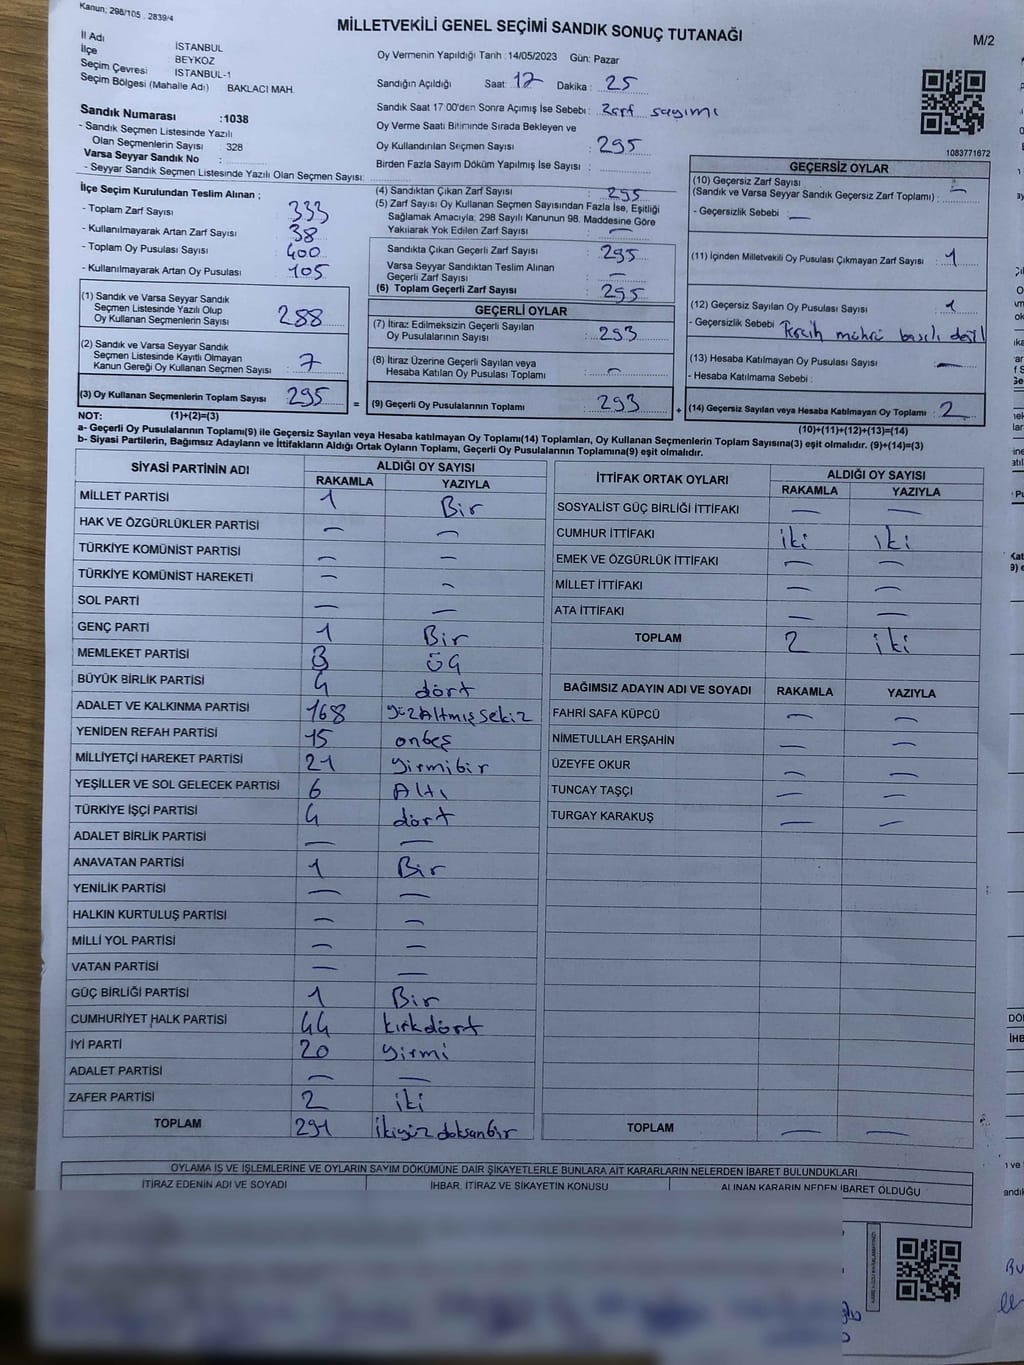 Kanun; 298/105 . 2839/4
MİLLETVEKİLİ GENEL SEÇİMİ SANDIK SONUÇ TUTANAĞI
M/2
İl Adı İSTANBUL
İlçe BEYKOZ
Seçim Çevresi İSTANBUL-1
Seçim Bölgesi (Mahalle Adı) BAKLACI MAH.
Oy Vermenin Yapıldığı Tarih : 14/05/2023 Gün: Pazar
Sandığın Açıldığı Saat: 17 Dakika : 25
Sandık Saat 17:00'den Sonra Açımış İse Sebebi : Zarf sayımı
Sandık Numarası :1038
- Sandık Seçmen Listesinde Yazılı
Olan Seçmenlerin Sayısı : 328
Varsa Seyyar Sandık No :
- Seyyar Sandık Seçmen Listesinde Yazılı Olan Seçmen Sayısı:
Oy Verme Saati Bitiminde Sırada Bekleyen ve
Oy Kullandırılan Seçmen Sayısı : 295
Birden Fazla Sayım Döküm Yapılmış İse Sayısı :
1083771672
İlçe Seçim Kurulundan Teslim Alınan ;
- Toplam Zarf Sayısı : 333
- Kullanılmayarak Artan Zarf Sayısı : 38
- Toplam Oy Pusulası Sayısı : 400
- Kullanılmayarak Artan Oy Pusulası : 105
(1) Sandık ve Varsa Seyyar Sandık
Seçmen Listesinde Yazılı Olup
Oy Kullanan Seçmenlerin Sayısı : 288
(2) Sandık ve Varsa Seyyar Sandık
Seçmen Listesinde Kayıtlı Olmayan
Kanun Gereği Oy Kullanan Seçmen Sayısı : 7
(3) Oy Kullanan Seçmenlerin Toplam Sayısı : 295
(4) Sandıktan Çıkan Zarf Sayısı : 295
(5) Zarf Sayısı Oy Kullanan Seçmen Sayısından Fazla İse, Eşitliği
Sağlamak Amacıyla; 298 Sayılı Kanunun 98. Maddesine Göre
Yakılarak Yok Edilen Zarf Sayısı : —
Sandıkta Çıkan Geçerli Zarf Sayısı : 295
Varsa Seyyar Sandıktan Teslim Alınan
Geçerli Zarf Sayısı : —
(6) Toplam Geçerli Zarf Sayısı : 295
GEÇERLİ OYLAR
(7) İtiraz Edilmeksizin Geçerli Sayılan
Oy Pusulalarının Sayısı : 293
(8) İtiraz Üzerine Geçerli Sayılan veya
Hesaba Katılan Oy Pusulası Toplamı : —
= (9) Geçerli Oy Pusulalarının Toplamı : 293
GEÇERSİZ OYLAR
(10) Geçersiz Zarf Sayısı
(Sandık ve Varsa Seyyar Sandık Geçersiz Zarf Toplamı) : —
- Geçersizlik Sebebi : —
(11) İçinden Milletvekili Oy Pusulası Çıkmayan Zarf Sayısı : 1
(12) Geçersiz Sayılan Oy Pusulası Sayısı : 1
- Geçersizlik Sebebi Tercih mührü basılı değil
(13) Hesaba Katılmayan Oy Pusulası Sayısı : —
- Hesaba Katılmama Sebebi :
+ (14) Geçersiz Sayılan veya Hesaba Katılmayan Oy Toplamı : 2
NOT: (1)+(2)=(3) (10)+(11)+(12)+(13)=(14)
a- Geçerli Oy Pusulalarının Toplamı(9) ile Geçersiz Sayılan veya Hesaba katılmayan Oy Toplamı(14) Toplamları, Oy Kullanan Seçmenlerin Toplam Sayısına(3) eşit olmalıdır. (9)+(14)=(3)
b- Siyasi Partilerin, Bağımsız Adayların ve İttifakların Aldığı Ortak Oyların Toplamı, Geçerli Oy Pusulalarının Toplamına(9) eşit olmalıdır.
SİYASİ PARTİNİN ADI ALDIĞI OY SAYISI
RAKAMLA YAZIYLA
MİLLET PARTİSİ 1 Bir
HAK VE ÖZGÜRLÜKLER PARTİSİ — —
TÜRKİYE KOMÜNİST PARTİSİ — —
TÜRKİYE KOMÜNİST HAREKETİ — —
SOL PARTİ — —
GENÇ PARTİ 1 Bir
MEMLEKET PARTİSİ 3 üç
BÜYÜK BİRLİK PARTİSİ 4 dört
ADALET VE KALKINMA PARTİSİ 168 yüzAltmışsekiz
YENİDEN REFAH PARTİSİ 15 onbeş
MİLLİYETÇİ HAREKET PARTİSİ 21 yirmibir
YEŞİLLER VE SOL GELECEK PARTİSİ 6 Altı
TÜRKİYE İŞÇİ PARTİSİ 4 dört
ADALET BİRLİK PARTİSİ — —
ANAVATAN PARTİSİ 1 Bir
YENİLİK PARTİSİ — —
HALKIN KURTULUŞ PARTİSİ — —
MİLLİ YOL PARTİSİ — —
VATAN PARTİSİ — —
GÜÇ BİRLİĞİ PARTİSİ 1 Bir
CUMHURİYET HALK PARTİSİ 44 kırkdört
İYİ PARTİ 20 yirmi
ADALET PARTİSİ — —
ZAFER PARTİSİ 2 iki
TOPLAM 291 ikiyüz doksanbir
İTTİFAK ORTAK OYLARI ALDIĞI OY SAYISI
RAKAMLA YAZIYLA
SOSYALİST GÜÇ BİRLİĞİ İTTİFAKI — —
CUMHUR İTTİFAKI iki iki
EMEK VE ÖZGÜRLÜK İTTİFAKI — —
MİLLET İTTİFAKI — —
ATA İTTİFAKI — —
TOPLAM 2 iki
BAĞIMSIZ ADAYIN ADI VE SOYADI RAKAMLA YAZIYLA
FAHRİ SAFA KÜPCÜ — —
NİMETULLAH ERŞAHİN — —
ÜZEYFE OKUR — —
TUNCAY TAŞÇI — —
TURGAY KARAKUŞ — —
TOPLAM — —
OYLAMA İŞ VE İŞLEMLERİNE VE OYLARIN SAYIM DÖKÜMÜNE DAİR ŞİKAYETLERLE BUNLARA AİT KARARLARIN NELERDEN İBARET BULUNDUKLARI
İTİRAZ EDENİN ADI VE SOYADI İHBAR, İTİRAZ VE ŞİKAYETİN KONUSU ALINAN KARARIN NEDEN İBARET OLDUĞU